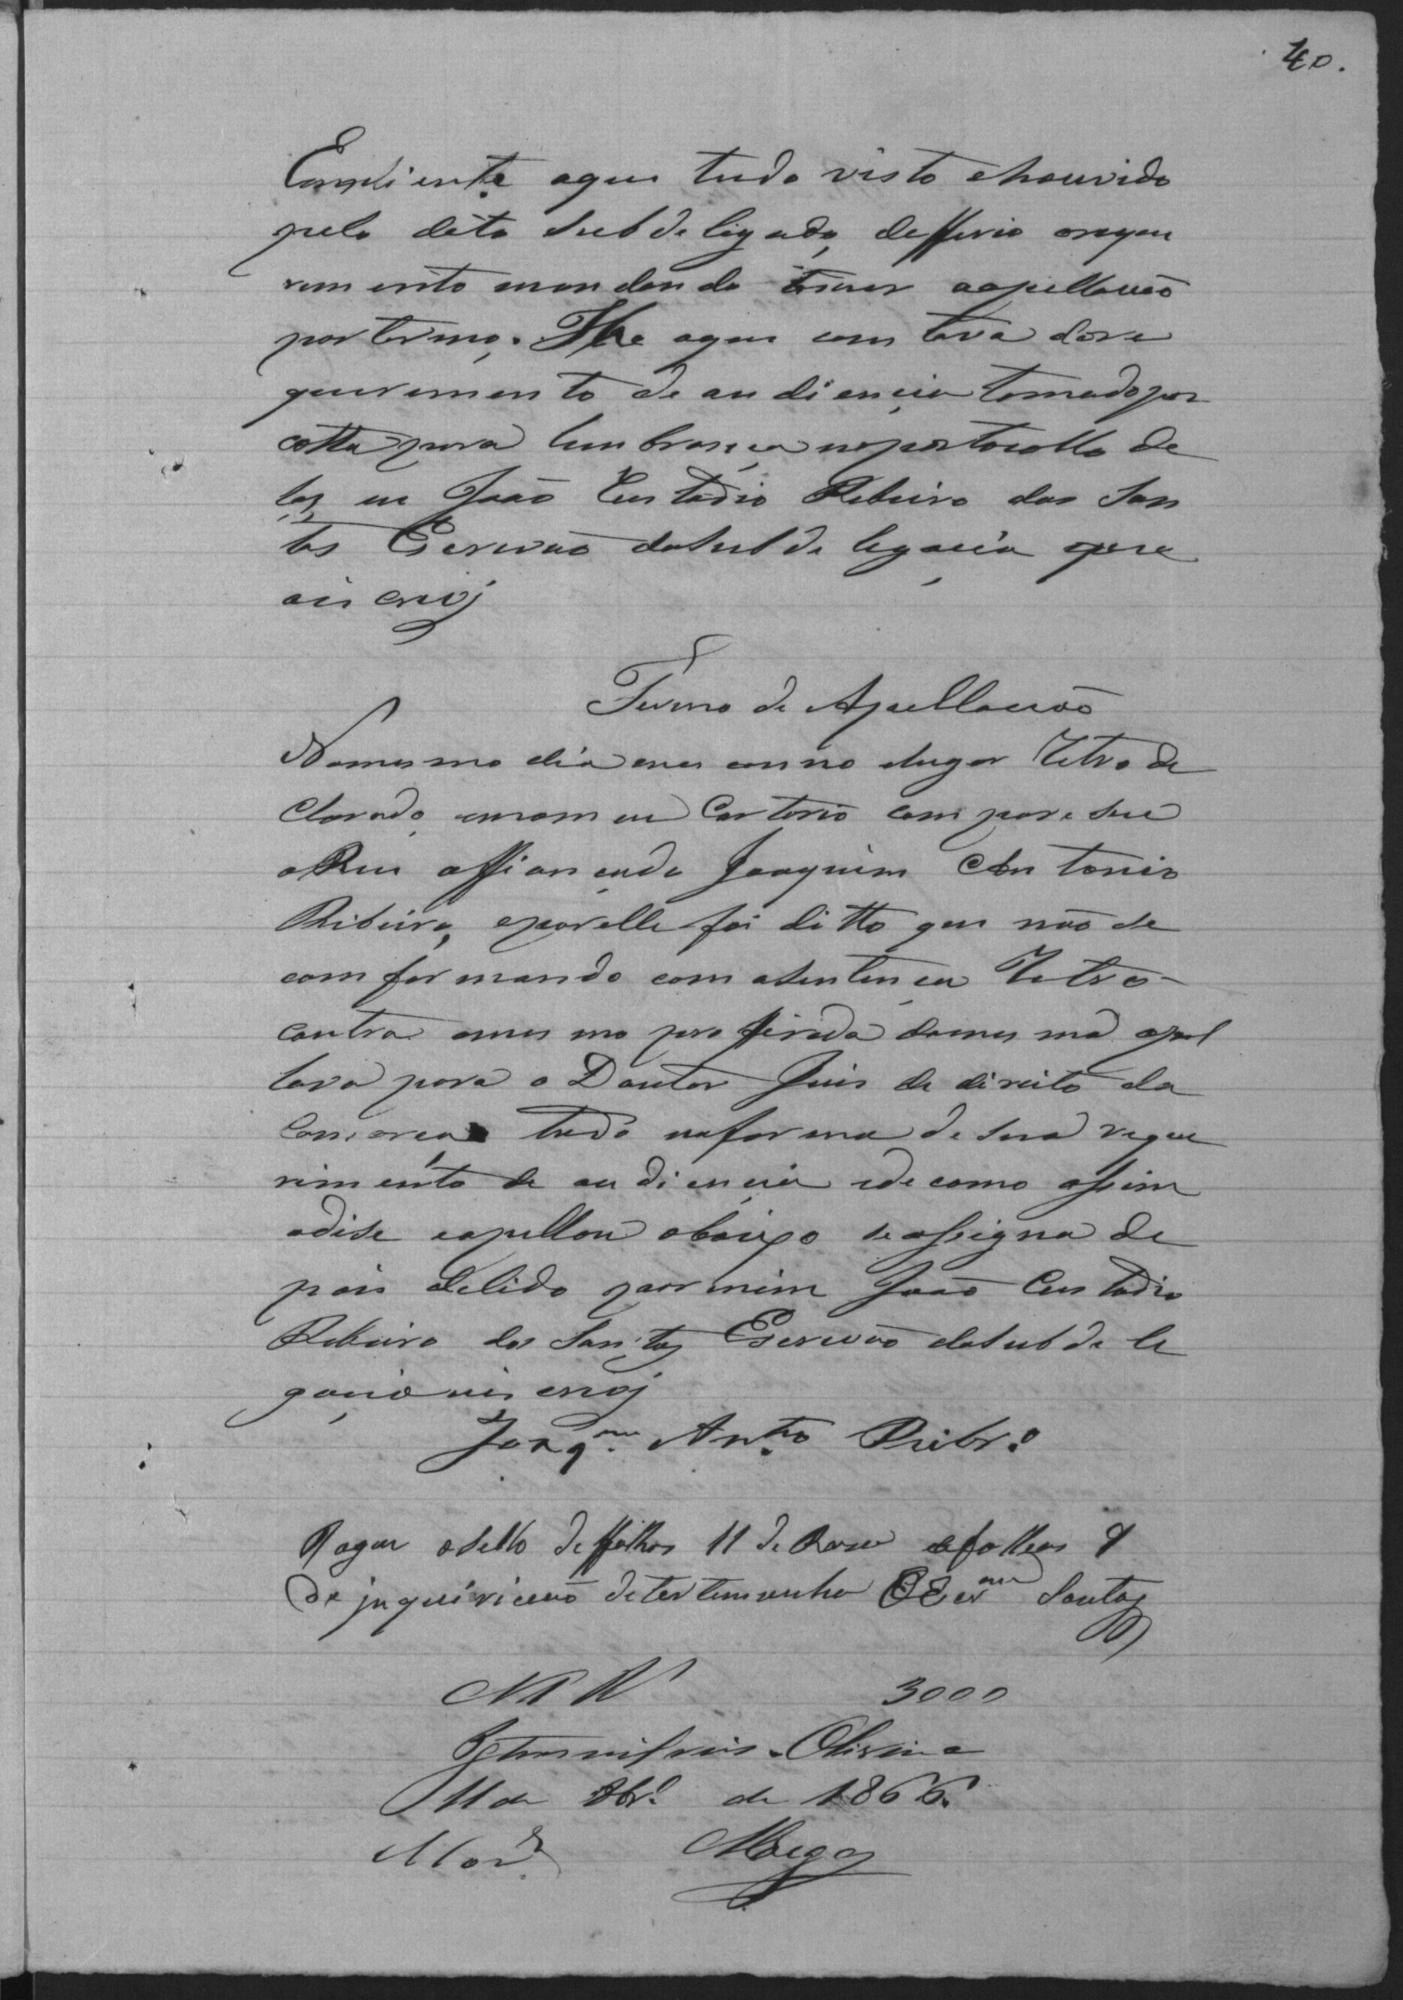 40.
Compliente aque tudo visto ehouvido
pelo dito Subdeligado, defferio oreque
rimento mandando tomar aapellacaõ
portermo. He aque constava dore
querimento de audiencia tomado por
cotta para lembrança noportocollo de
las eu João Custodio Ribeiro dos San
tos Escrivaõ daSubdelegacia qere
ais crevÿ
Termo de Apellacaõ
Nomesmo dia mes eanno elugar Retro de
clarado, emomeu Cartorio compareseu
oReu affiancado Joaquim Antonio
Ribeiro, eporelle foi ditto que naõ se
comformando com aSentença Retro
contra omesmo profferida damesma apel
lava para o Doutor Juis de direito da
Comarca tudo naforma de Seu reque
rimento de audiencia ede como assim
odise eapellou abaixo seassigna de
pois delido por mim João Custodio
Ribeiro dos Santos Escrivaõ daSubdele
gacia ais crevÿ
Joaqm. Anto. Ribro.
Pagou oSello deffolhas 11 de Raza efolhas 9
de inquiriçaõ detestemunha OEscram Santos
N 1 R 3000
Oliveira
11 de 8bro. de 1866.